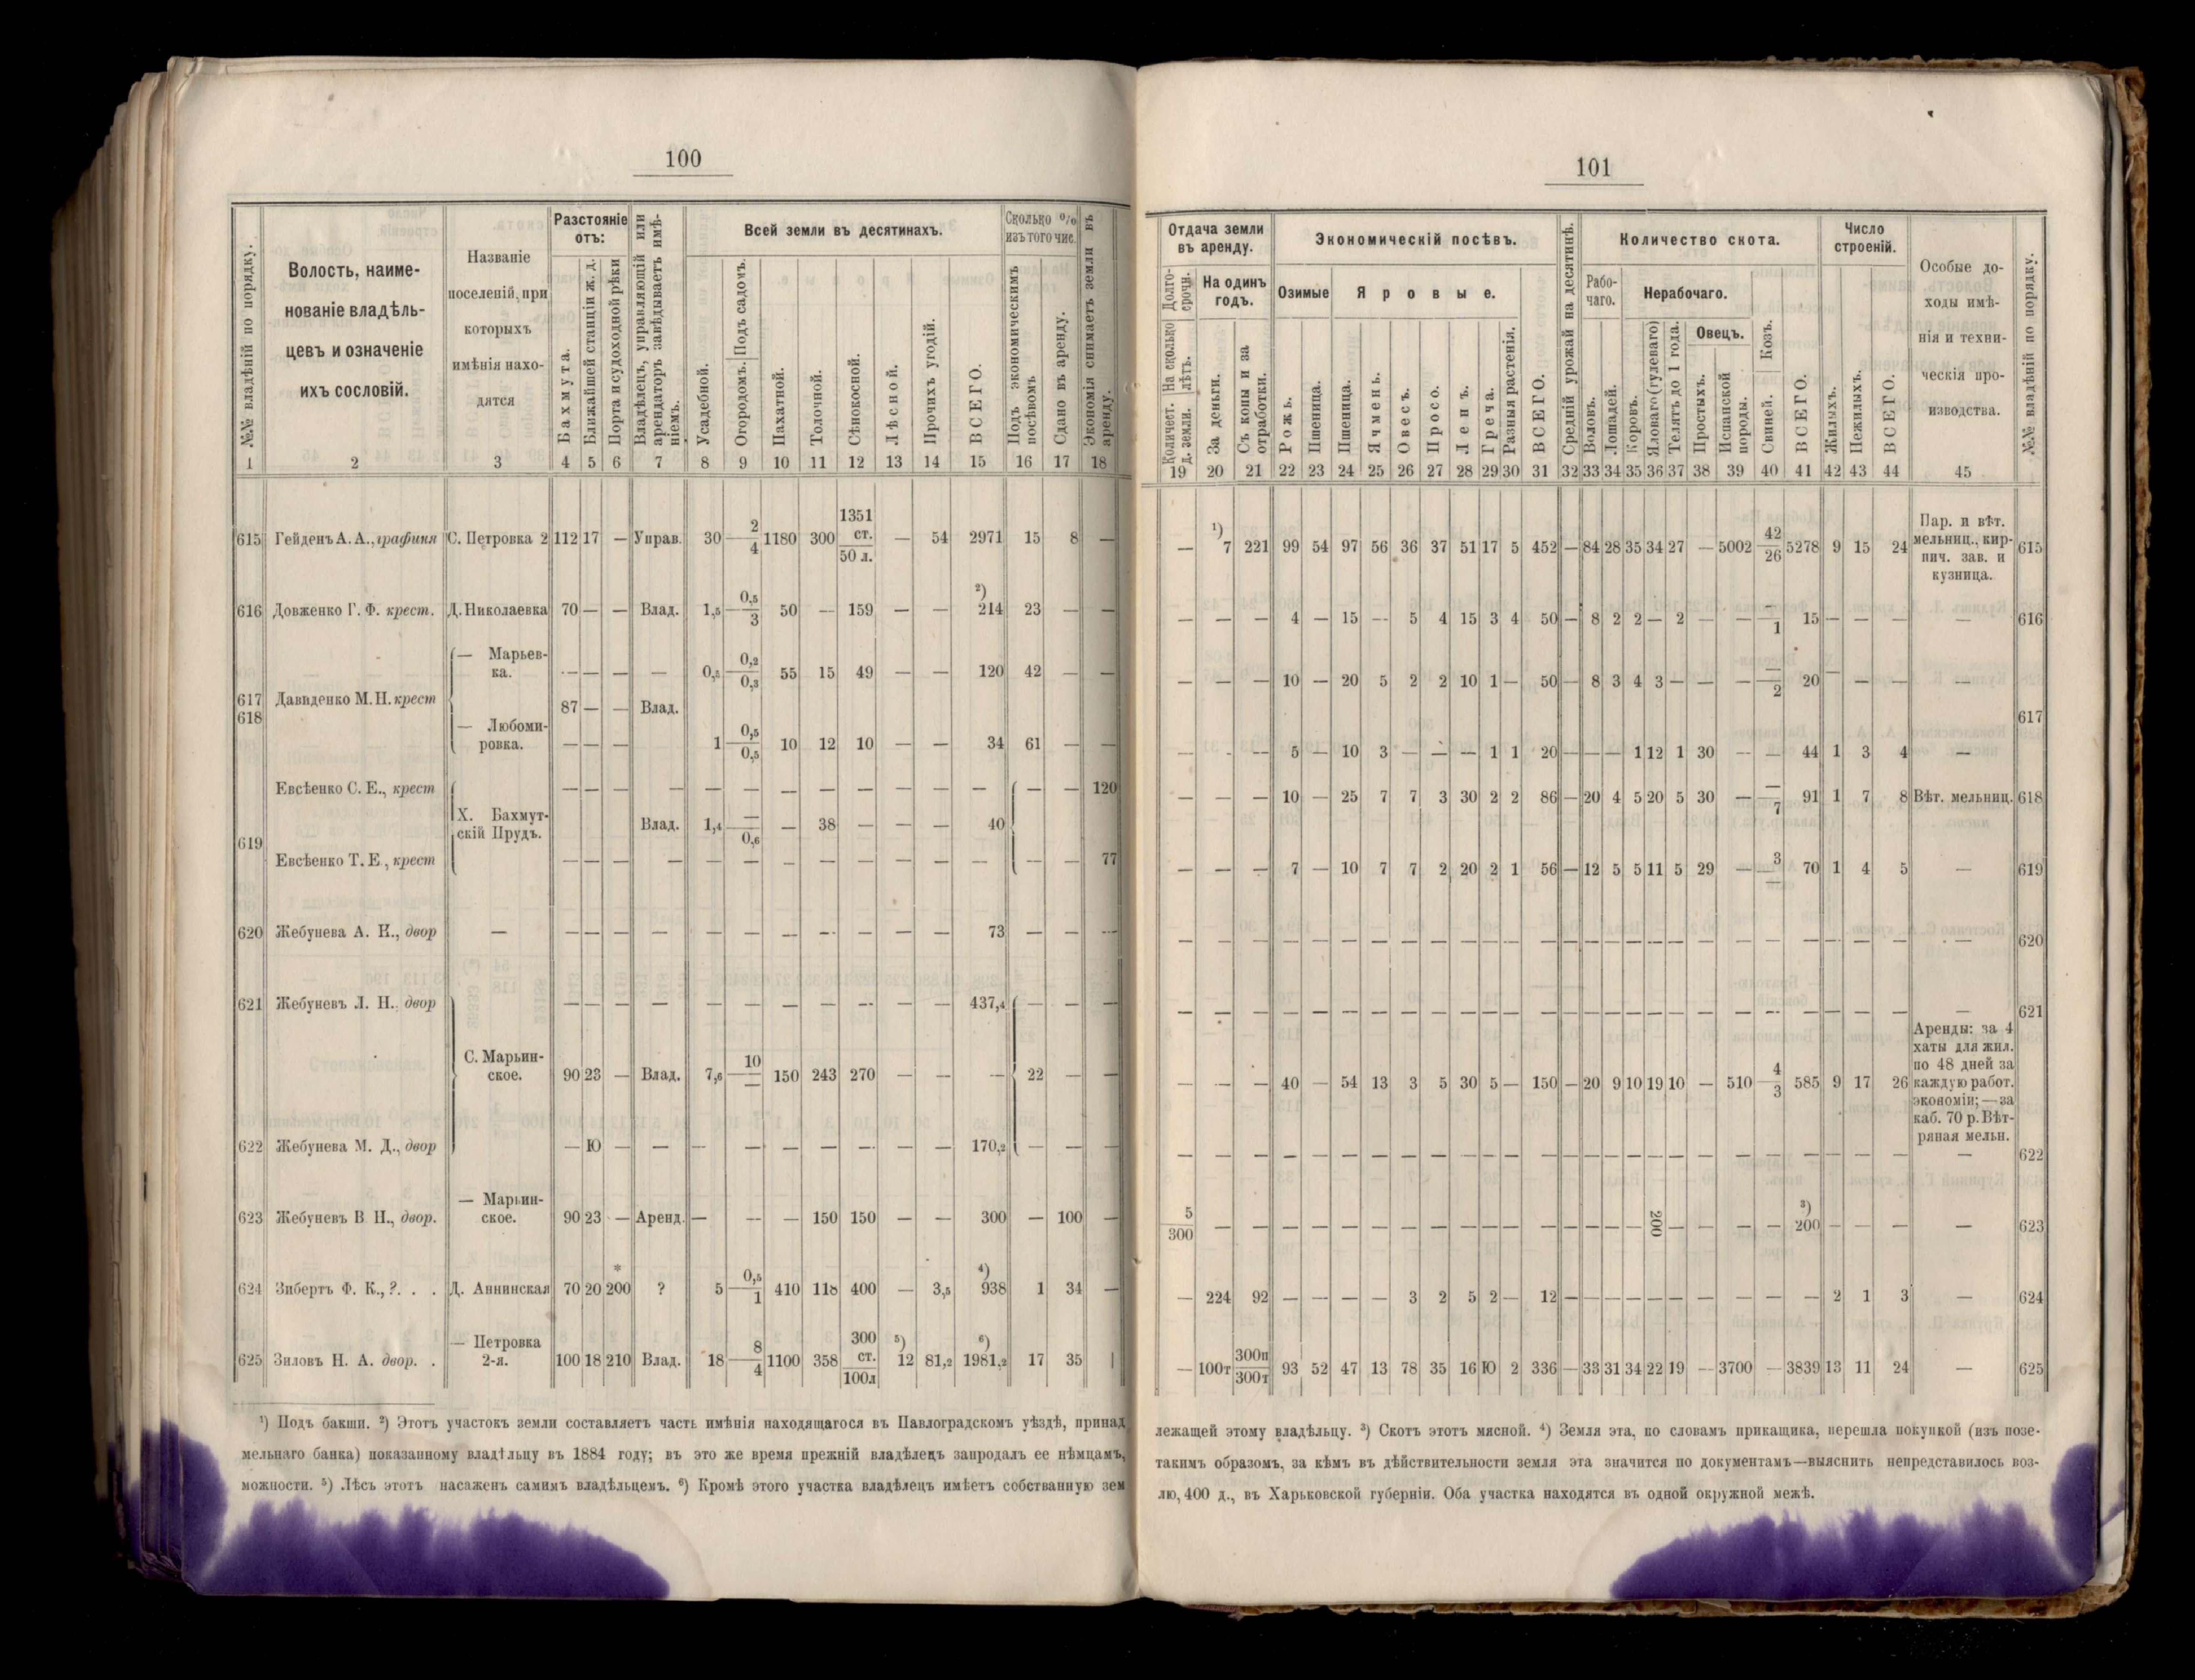 100
№№ владѣній по порядку.
Волость, наиме-
нованіе владѣль-
цевъ и означеніе
ихъ сословій.
Названіе
поселеній, при
которыхъ
имѣнія нахо-
дятся
Разстояніе
отъ:
Бахмута.
Ближайшей станціи ж. д.
Порта и судоходной рѣки
Владѣлецъ, управляющій или
арендаторъ завѣдываетъ имѣ-
ніемъ.
Всей земли въ десятинахъ.
Усадебной.
Огородомъ. Подъ садомъ.
Пахатной.
Толочной.
Сѣнокосной.
Лѣсной.
Прочихъ угодій.
ВСЕГО.
Сколько %
изъ того чис.
Подъ экономическимъ
посѣвомъ
Сдано въ аренду.
Экономія снимаетъ земли въ
аренду.
1 2 3 4 5 6 7 8 9 10 11 12 13 14 15 16 17 18
615 Гейденъ А. А., графиня С. Петровка 2 112 17 — Управ. 30 2/4 1180 300 1351 ст./50 л. — 54 2971 15 8 —
616 Довженко Г. Ф. крест. Д. Николаевка 70 — — Влад. 1,5 0,5/3 50 — 159 — — ²) 214 23 — —
— Марьев-
ка. — — — — 0,5 0,2/0,3 55 15 49 — — 120 42 — —
617
618 Давиденко М. Н. крест 87 — — Влад.
— Любоми-
ровка. — — — 1 0,5/0,5 10 12 10 — — 34 61 — —
Евсѣенко С. Е., крест — — — — — — — — — — — — — — 120
619 Х. Бахмут-
скій Прудъ. Влад. 1,4 —/0,6 — 38 — — — 40
Евсѣенко Т. Е., крест — — — — — — — — — — — — — — 77
620 Жебунева А. Н., двор — — — — — — — — — — — — 73 — — —
621 Жебуневъ Л. Н. двор — — — — — — — — — — — 437,4 — — —
С. Марьин-
ское. 90 23 — Влад. 7,6 10/— 150 243 270 — — — 22 — —
622 Жебунева М. Д., двор — Ю — — — — — — — — — 170,2 — —
623 Жебуневъ В Н., двор. — Марьин-
ское. 90 23 — Аренд. — — — 150 150 — — 300 — 100 —
624 Зибертъ Ф. К., ?. . . Д. Аннинская 70 20 200* ? 5 0,5/1 410 118 400 — 3,5 ⁴) 938 1 34 —
625 Зиловъ Н. А. двор. . — Петровка
2-я. 100 18 210 Влад. 18 8/4 1100 358 300 ст./100л ⁵) 12 81,2 ⁶) 1981,2 17 35 |
¹) Подъ бакши. ²) Этотъ участокъ земли составляетъ часть имѣнія находящагося въ Павлоградскомъ уѣздѣ, принад
мельнаго банка) показанному владѣльцу въ 1884 году; въ это же время прежній владѣлецъ запродалъ ее нѣмцамъ,
можности. ⁵) Лѣсъ этотъ насаженъ самимъ владѣльцемъ. ⁶) Кромѣ этого участка владѣлецъ имѣетъ собственную зем
101
Отдача земли
въ аренду.
Долго-
срочн.
Количест. На сколько
д. земли. лѣтъ.
На одинъ
годъ.
За деньги.
Съ копы и за
отработки.
Экономическій посѣвъ.
Озимые
Яровые.
Рожь.
Пшеница.
Пшеница.
Ячмень.
Овесъ.
Просо.
Ленъ.
Греча.
Разныя растенія.
ВСЕГО.
Средній урожай на десятинѣ.
Количество скота.
Рабо-
чаго.
Нерабочаго.
Воловъ.
Лошадей.
Коровъ.
Яловаго (гулеваго)
Телятъ до 1 года.
Овецъ.
Простыхъ.
Испанской
породы.
Свиней. Козъ.
ВСЕГО.
Число
строеній.
Жилыхъ.
Нежилыхъ.
ВСЕГО.
Особые до-
ходы имѣ-
нія и техни-
ческія про-
изводства.
№№ владѣній по порядку.
19 20 21 22 23 24 25 26 27 28 29 30 31 32 33 34 35 36 37 38 39 40 41 42 43 44 45
— ¹) 7 221 99 54 97 56 36 37 51 17 5 452 — 84 28 35 34 27 — 5002 42/26 5278 9 15 24 Пар. и вѣт.
мельниц., кир-
пич. зав. и
кузница. 615
— — — 4 — 15 — 5 4 15 3 4 50 — 8 2 2 — 2 — — —/1 15 — — — — 616
— — — 10 — 20 5 2 2 10 1 — 50 — 8 3 4 3 — — — —/2 20 — — — —
617
— - — 5 — 10 3 — — — 1 1 20 — — — 1 12 1 30 — — 44 1 3 4 —
— — — 10 — 25 7 7 3 30 2 2 86 — 20 4 5 20 5 30 — —/7 91 1 7 8 Вѣт. мельниц. 618
— — — 7 — 10 7 7 2 20 2 1 56 — 12 5 5 11 5 29 — 3/— 70 1 4 5 — 619
— — — — — — — — — — — — — — — — — — — — — — — — — — — 620
— — — — — — — — — — — — — — — — — — — — — — — — — — — 621
— — — 40 — 54 13 3 5 30 5 — 150 — 20 9 10 19 10 — 510 4/3 585 9 17 26 Аренды: за 4
хаты для жил.
по 48 дней за
каждую работ.
экономіи; — за
каб. 70 р. Вѣт-
ряная мельн.
— — — — — — — — — — — — — — — — — — — — — — — — — — — 622
5/300 — — — — — — — — — — — — — — — — 200 — — — — ³) 200 — — — — 623
— 224 92 — — — — 3 2 5 2 — 12 — — — — — — — — — — 2 1 3 — 624
— 100т 300п/300т 93 52 47 13 78 35 16 Ю 2 336 — 33 31 34 22 19 — 3700 — 3839 13 11 24 — 625
лежащей этому владѣльцу. ³) Скотъ этотъ мясной. ⁴) Земля эта, по словамъ прикащика, перешла покупкой (изъ позе-
такимъ образомъ, за кѣмъ въ дѣйствительности земля эта значится по документамъ—выяснить непредставилось воз-
лю, 400 д., въ Харьковской губерніи. Оба участка находятся въ одной окружной межѣ.